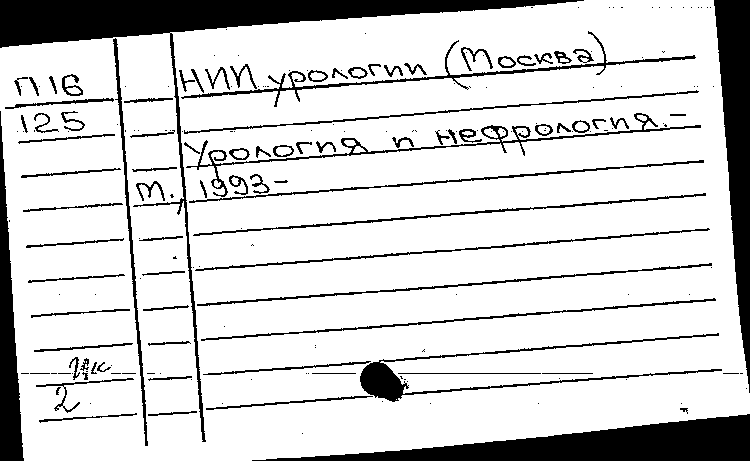 П16 НИИ урологии (Москва)
125
Урология и нефрология.-
М., 1993-
2